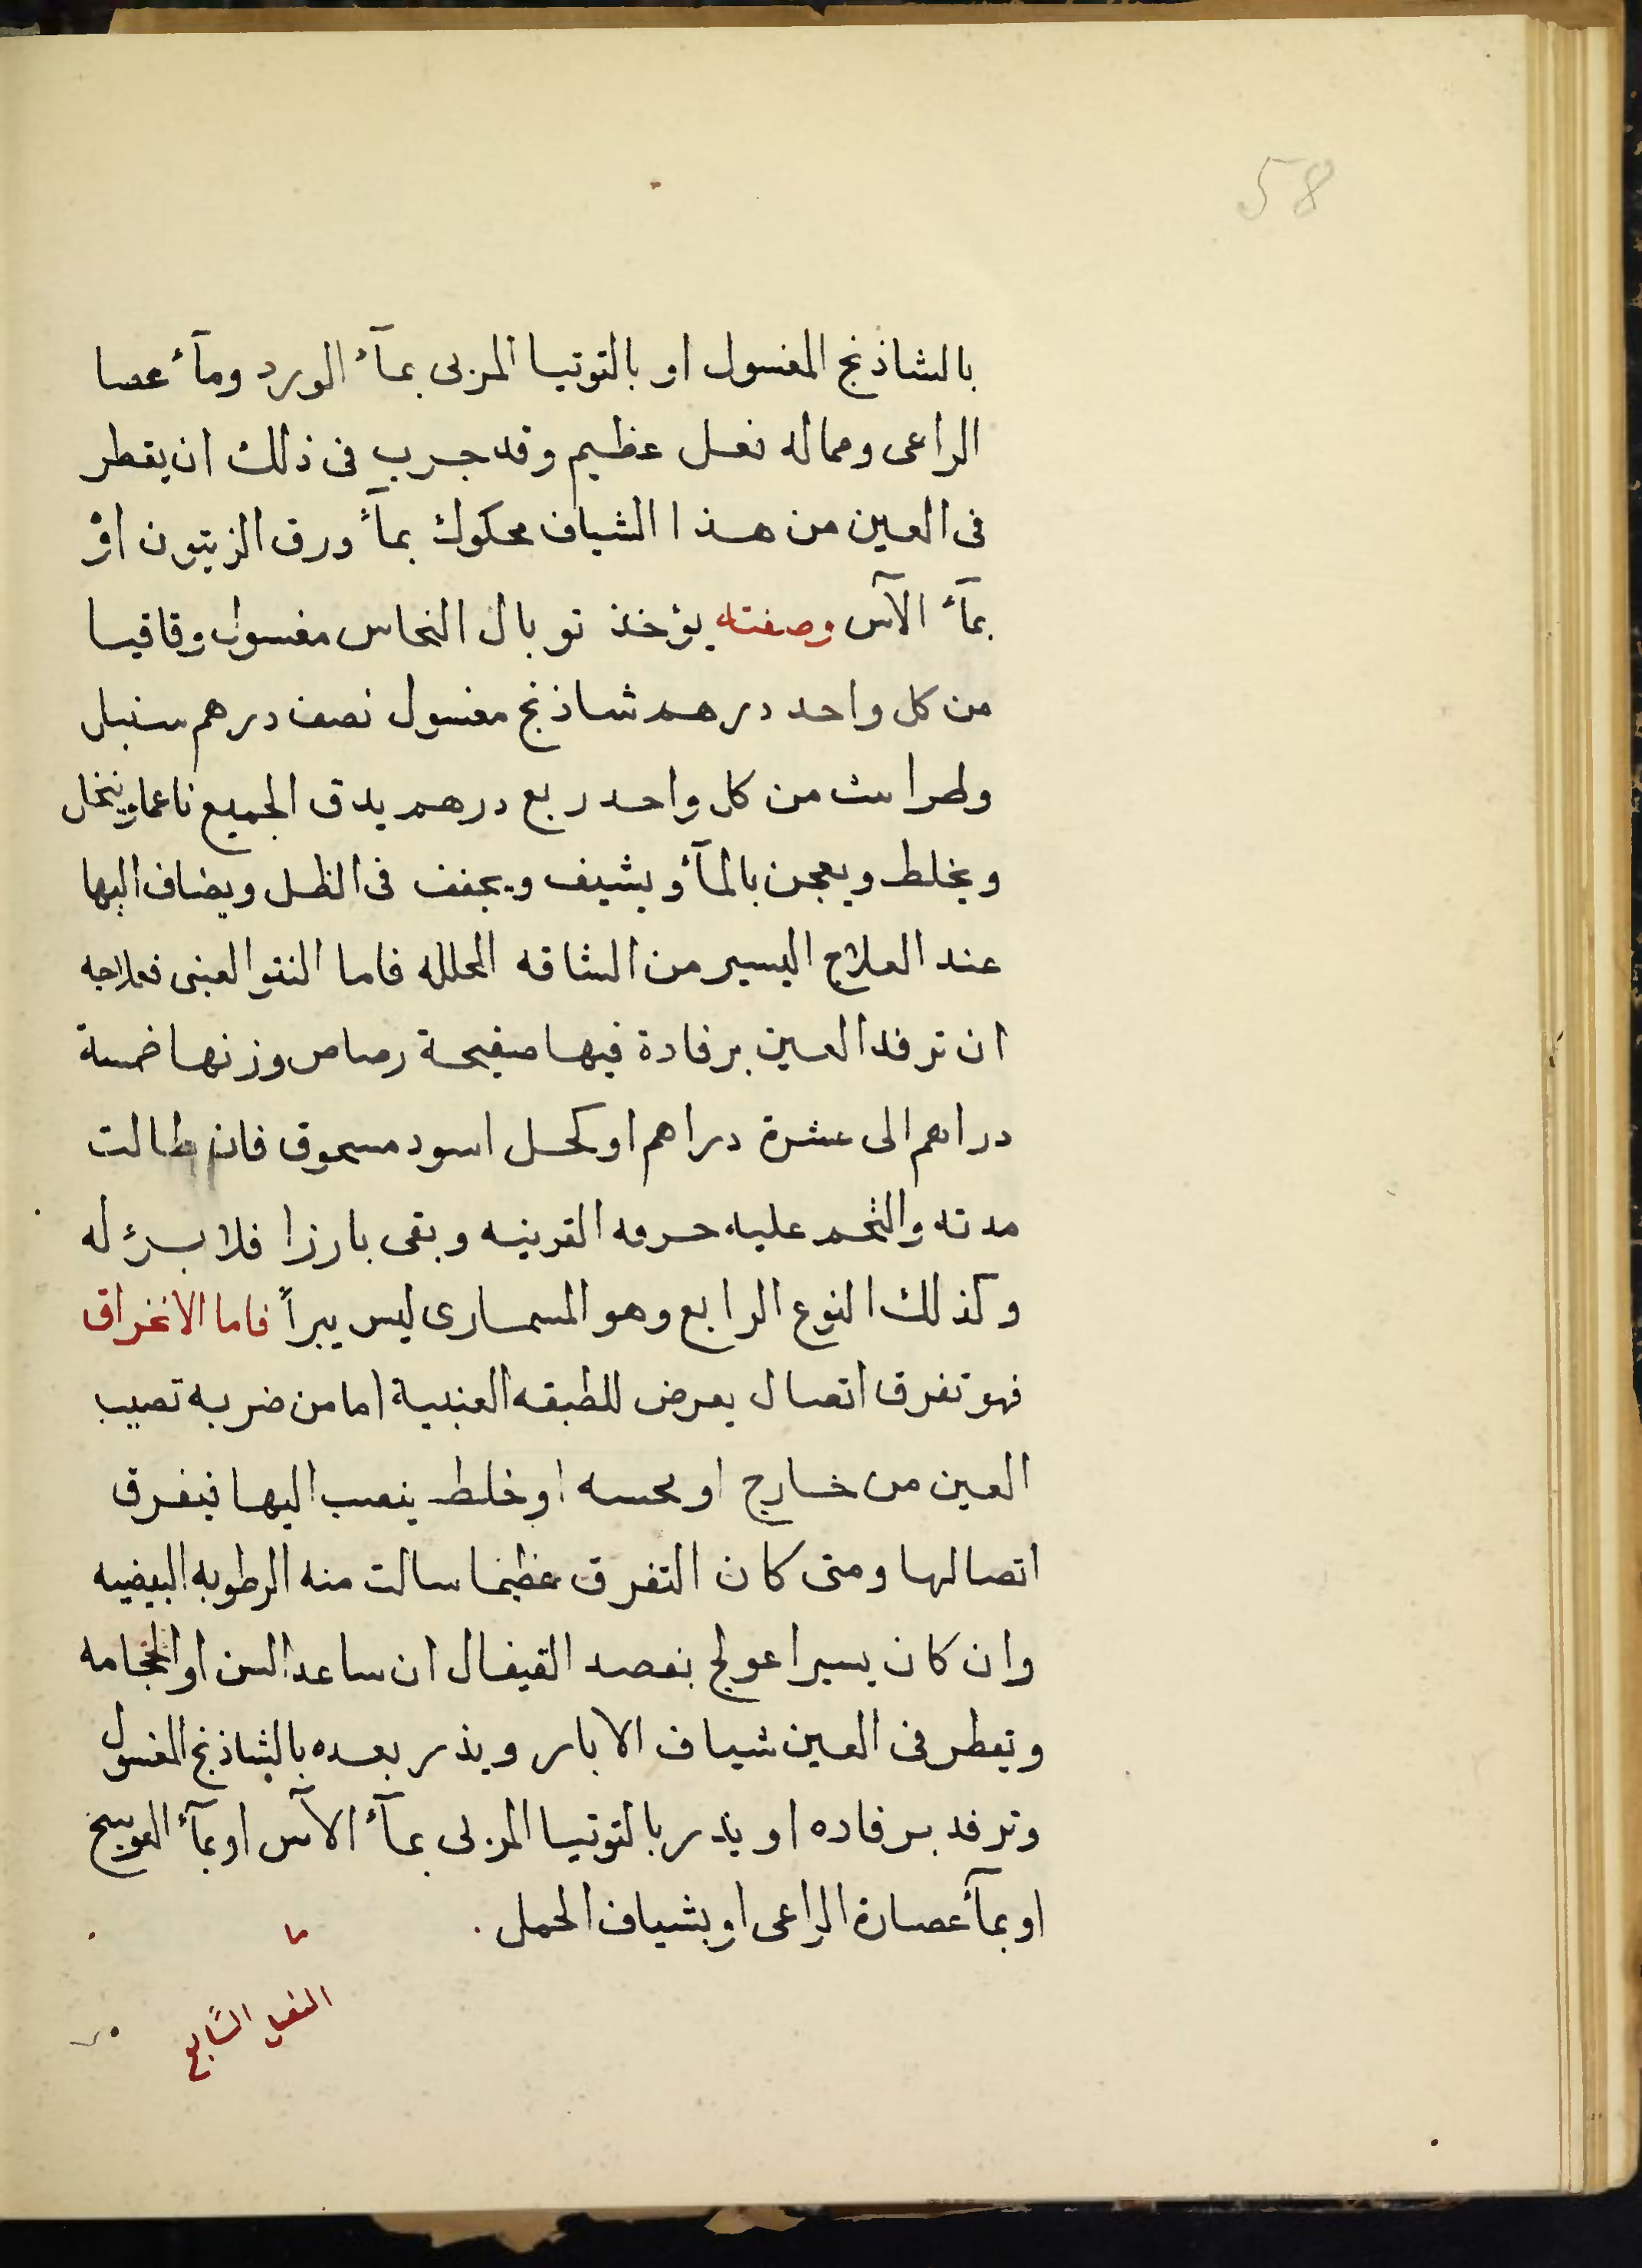 58
بالشاذنج المغسول او بالتوتيا المربى بمآء الورد ومآء عصا
الراعى ومماله نعل عظيم وقد جرب فى ذلك ان يقطر
فى العين من هذا الشياف محكوك بمآء ورق الزيتون او
بمآء الآس وصفته يؤخذ توبال النحاس مغسول وقاقيا
من كل واحد درهم شاذنج مغسول نصف درهم سنبل
وطراىث من كل واحد ربع درهم يدق الجميع ناعما وينخل
ويخلط ويعجن بالمآء ويشيف ويجفف فى الظل ويضاف اليها
عند العلاج اليسير من الشاقه المحلله فاما النتو العنبى فعلاجه
ان ترفد العين برفادة فيها صفيحة رصاص وزنها خمسة
دراهم الى عشرة دراهم او كحل اسود مسحوق فان طالت
مدته والتحم عليه حرف القرنيه وبقى بارزا فلا برء له
وكذلك النوع الرابع وهو المسمارى ليس يبرأ فاما الانخراق
فهو تفرق اتصال يعرض للطبقه العنبية اما من ضربه تصيب
العين من خارج او نخسه او خلط ينصب اليها فيفرق
اتصالها ومتى كان التفرق عظيما سالت منه الرطوبه البيضيه
وان كان يسيرا عولج بفصد القيفال ان ساعد السن او الحجامه
وتقطر فى العين شياف الابار ويذر بعده بالشاذنج المغسول
وترفد برفاده او يذر بالتوتيا المربى بمآء الآس او بمآء العوسج
او بمآء عصارة الراعى او بشياف الحمل
الفصل السابع